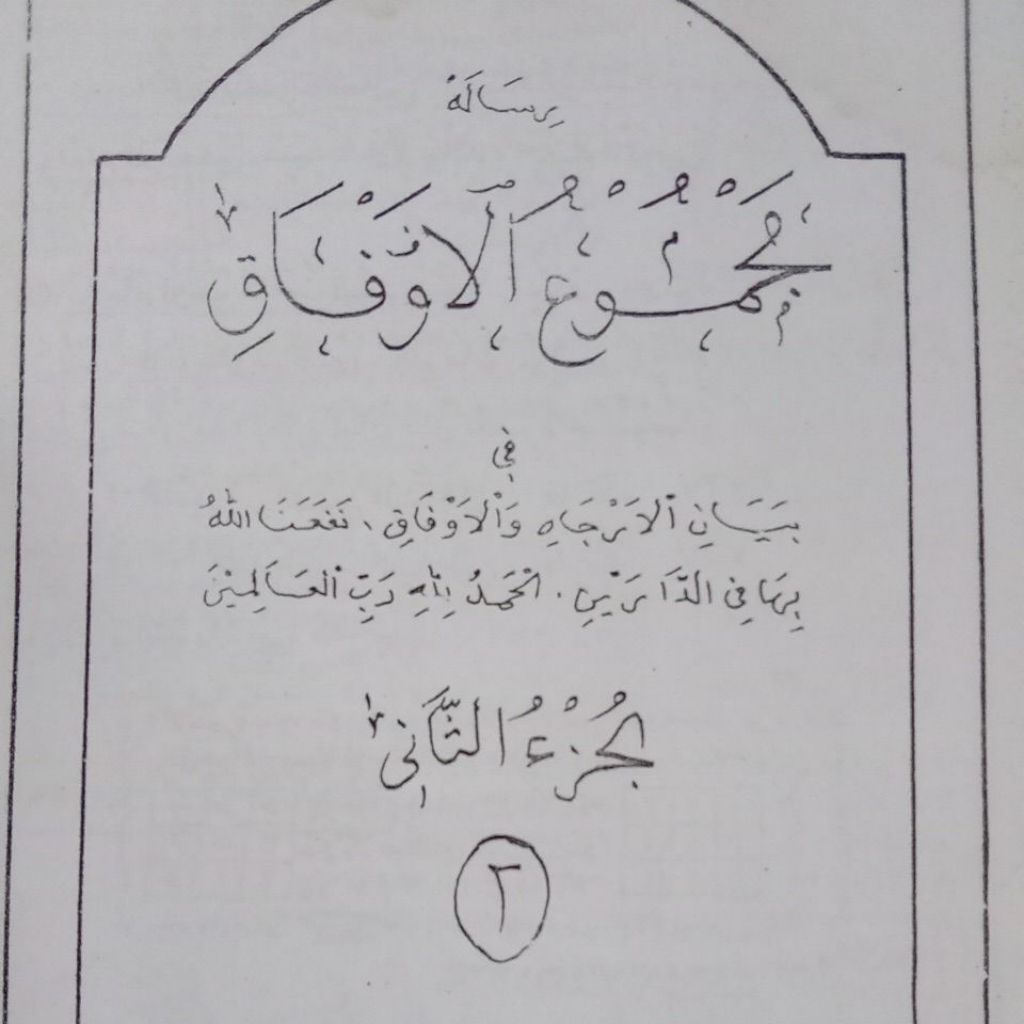 رِسَالَةْ
مَجْمُوْعُ الْاَوْفَاقِ
فِي
بَيَانِ اْلاَرْجَاهِ وَاْلاَوْفَاقِ، نَفَعَنَا اللهُ
بِهَا فِى الدَّارَيْنِ. اَلْحَمْدُ لِلّٰهِ رَبِّ الْعَالَمِيْنَ
جُزْءُ الثَّانِى
٢